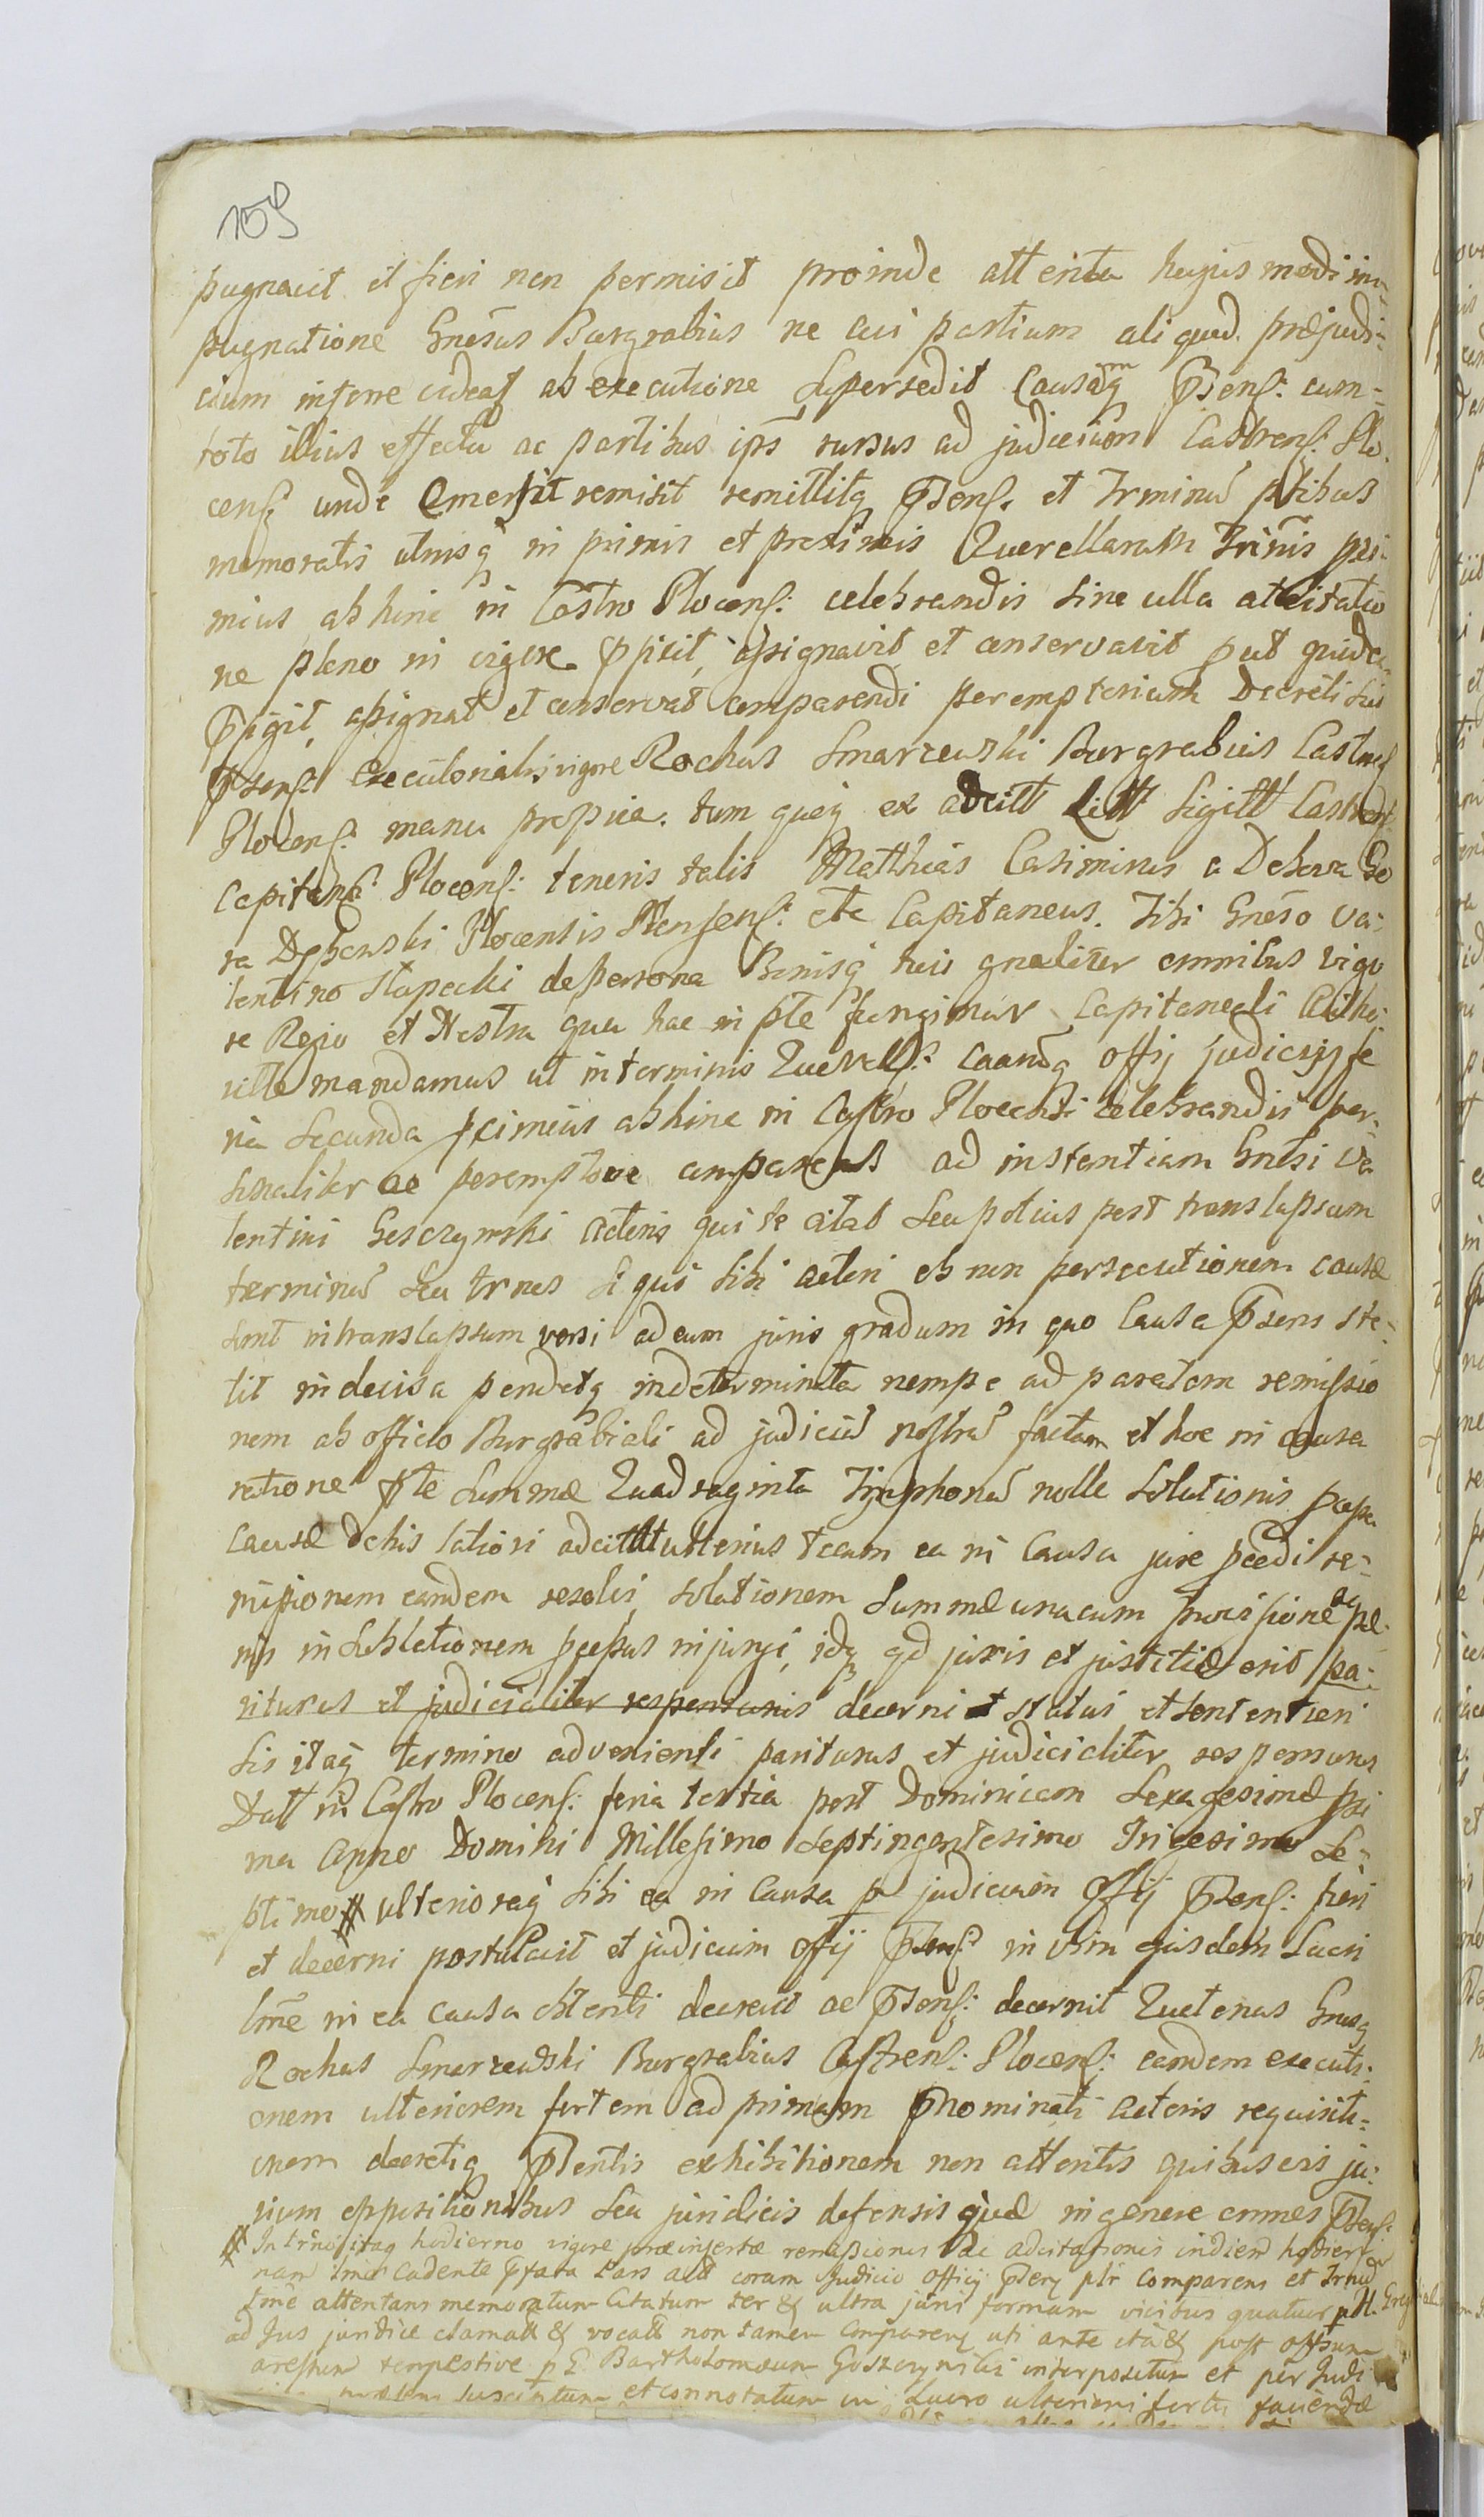 159
pugnavit et fieri non permisit proinde attenta hujus modi im-
pugnatione Gnesus Burgrabius ne cui partium aliquod præjudi-
cium inferre videatr ab executione supersedit Causamq Pnsens: cum-
toto illius effectu ac partibus ips rursus ad judicium Castrens: Plo-
cens: unde Emersit remisit remittitq Pnsens: et Trminu ptibus
memoratis utrisq in primis et proximis Querellarum Trinis pri-
mius abhinc in Castro Plocens: celebrandis sine ulla adcitatio
ne pleno in vigore Pfixit, assignavit et conservavit put quide
Pfigit, assignat et conservat comparendi peremptorium Decreti sui
Pnsens: Executorialis vigore Rochus Smarzewski Burgrabius Castrens
Plocens: manu propria. tum quoq ex adcitt Litt Sigill Castrens:
Capitans: Plocens: tenoris talis Matthias Casimirus a Debova Go
ra Dębowski Plocensis etc Capitaneus. Tibi Gneso Va-
lentino Słapecki de persona Bonisq tuis gnaliter omnibus vigo
re Regio et Nostra qua hac in pte fungimur Capitaneali Autho-
ritte mandamus ut in terminis Querells: Caarumq offij judicij fe
ria Secunda primius abhinc in Castro Plocensi celebrandis per-
sonaliter ac peremptorie compareas ad instantiam Gnesi Va
lentini Goszczynski Actoris qui te citat seu potius post translapsum
terminu seu trnos si qui sibi actori ob non persecutionem causæ
sunt in translapsum versi ad eum juris gradum in quo Causa Pnsens ste-
tit indecisa pendetq indeterminata nempe ad paratam remissio
nem ab officio Burgrabiali ad judiciu nostru factam et hoc in causa
ratione Pte Summæ Quadraginta Tymphonu nolle Solutionis prope
Causæ de his latiori adcitt ulterius tecum ea in Causa jure pcedi re-
missionem eandem resolvi, solutionem Summæ unacum provisione ac pæ-
nis in sublationem pcepus injungi, idq qd juris et justitiæ erit pa-
riturus et judicialiter responsuris decerni statui et sententiari
Sis itaq termino advenienti pariturus et judicialiter responsurus
Datt in Castro Plocens: feria tertia post Dominicam Sexagesimæ pxi
ma Anno Domini Millesimo Septingentesimo Trigesimo Se-
ptimo # ulteriora q sibi ea in Causa p judicium Offij Pnsens: fieri
et decerni postulavit et judicium offij Pnsens: in vim ejusdem Lucri
Tme in ea causa obtenti decrevit ac Pnsens: decernit Quatenus Gnesq
Rochus Smarzewski Burgrabius Castrens: Plocens: eandem executi-
onem ulteriorem fortem ad primam Pnominati actoris requisiti-
onem decretiq Pnsentis exhibitionem non attentis quibusvis ju-
rium oppositionibus seu juridicis defensis quæ in genere omnes Pnsens:
# In trno itaq hodierno vigore præinsertæ remissionis ac adcitationis indiem hodier
nam Tme Cadente Pfata Pars act coram Judicio Officij Pnsens ptr Comparens et Trnu
Tme attentans memoratum Citatum ter & ultra juris formam vicibus quatuor p H. Gre
ad Jus juridice clamatt & vocatt non tamen Comparens uti ante ita & post
arestum tempestive p G. Bartholomæum Goszczynski interpositum et per Judi
susceptum et connotatum in Lucro ulteriori forti faciendæ